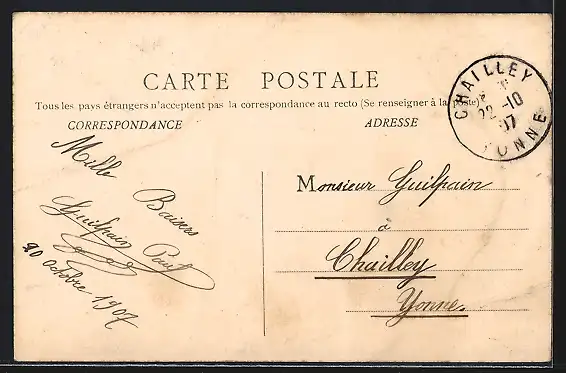 CARTE POSTALE
Tous les pays étrangers n'acceptent pas la correspondance au recto (Se renseigner à la poste)
CORRESPONDANCE
ADRESSE
CHAILLEY
22 -10
07
YONNE
Mille Baisers
Guilpain Paul
20 Octobre 1907
Monsieur Guilpain
à
Chailley
Yonne.